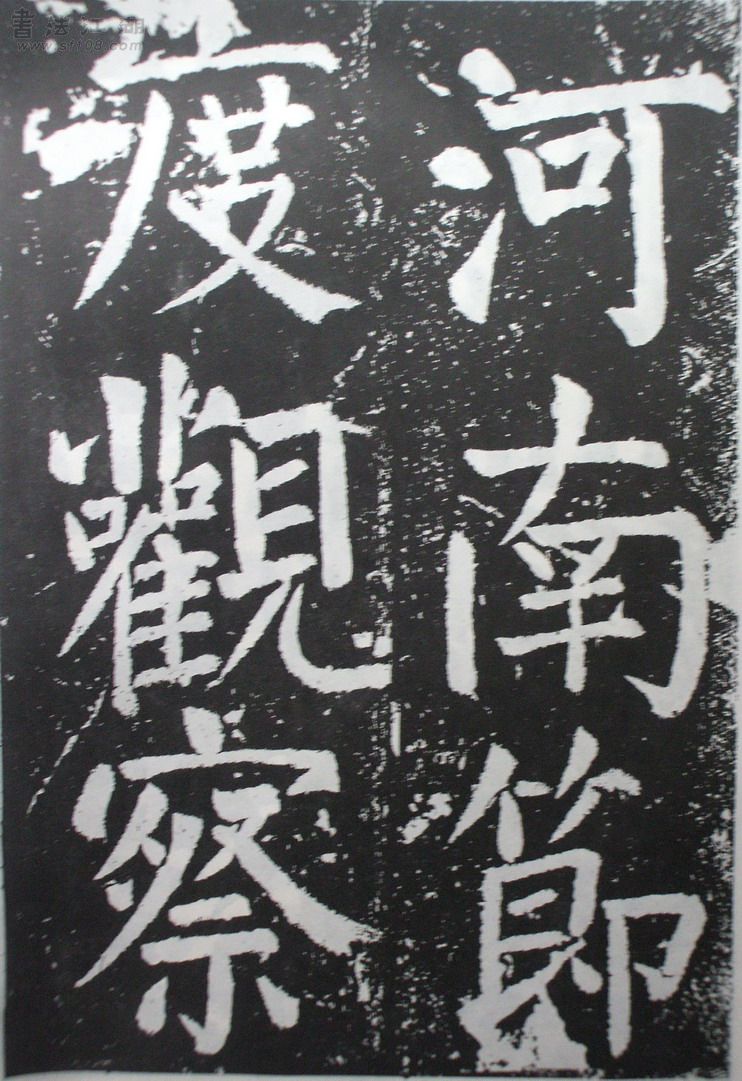 河南節
度觀察
書法江湖
www.sf108.com